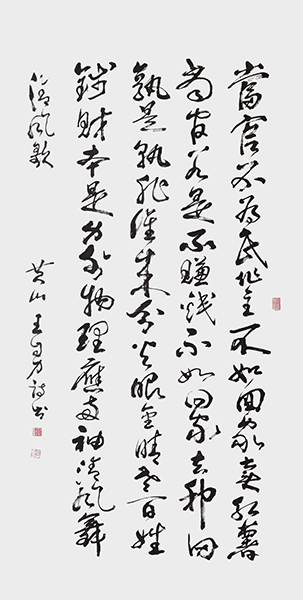 當官不為民作主不如回家賣紅薯
官若是不賺錢不如回家去种田
孰是孰非誰来分火眼金睛老百姓
錢財本是身外物理應兩袖清風舞
清風歌
黄山王詩书